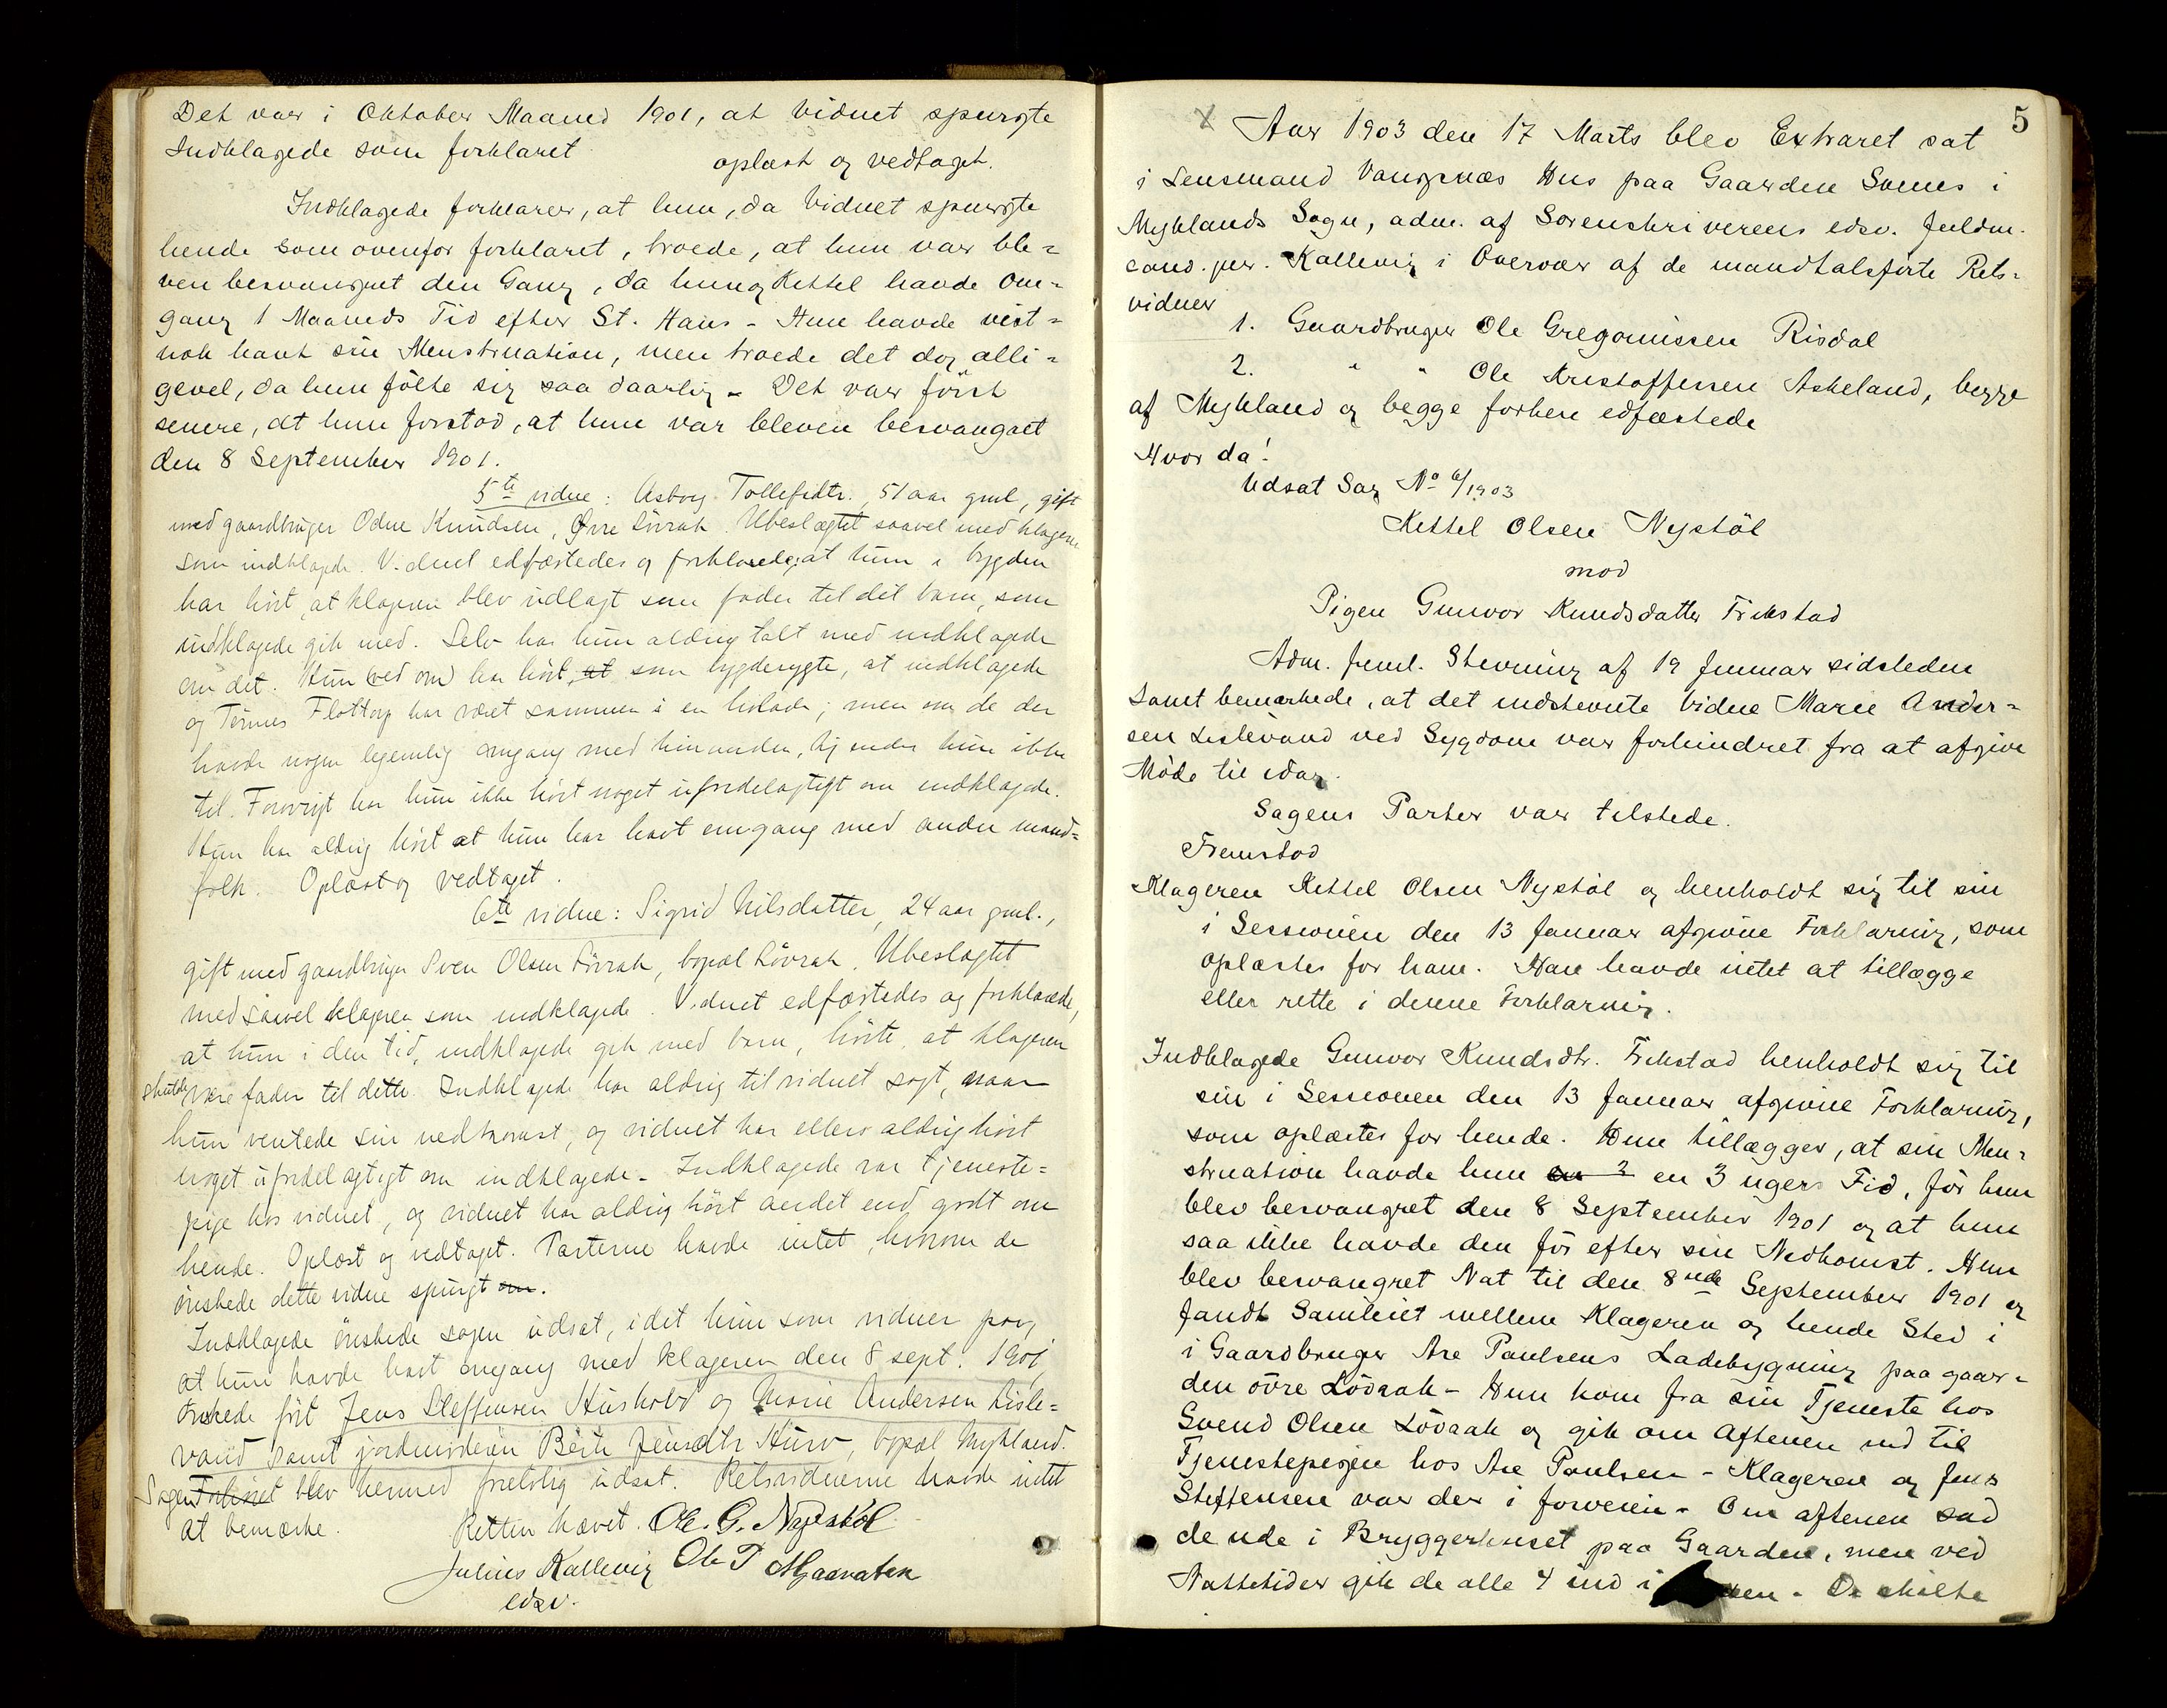 Det var i Oktober Maaned 1901, at Vidnet spurgte
Indklagede som forklaret
oplæst og vedtaget.
Indklagede forklarer, at hun, da Vidnet spurgte
hende som ovenfor forklaret, troede, at hun var ble-
ven besvangret den Gang, da hun og Kittel havde Om-
gang 1 Maaneds Tid efter St. Hans - Hun havde vist-
nok havt sin Menstruation, men troede det dog alli-
gevel, da hun følte sig saa daarlig - Det var først
senere, at hun forstod, at hun var bleven besvangret
den 8 September 1901.
5te vidne: Asborg Tollefsdtr., 51 aar gml, gift
med gaardbruger Odne Knudsen, Øvre Lövrak. Ubeslægtet saavel med klageren
som indklagede. Vidnet edfæstedes og forklarede, at hun i bygden
har hört, at klageren blev udlagt som fader til det barn, som
indklagede gik med. Selv har hun aldrig talt med indklagede
om det. Hun (ved om) har hört, at som bygderygte, at indklagede
og Tönnes Flottorp har været sammen i en hölade; men om de der
havde nogen legemlig omgang med hinanden, kjender hun ikke
til. Forövrigt har hun ikke hört noget ufordelagtigt om indklagede.
Hun har aldrig hört at hun har havt omgang med andre mand-
folk. Oplæst og vedtaget.
6te vidne: Sigrid Nilsdatter, 24 aar gml.,
gift med gaardbruger Sven Olsen Lövrak, bopæl Lövrak. Ubeslægtet
med saavel klageren som indklagede. Vidnet edfæstedes og forklarede,
at hun i den tid, indklagede gik med barn, hörte, at klageren
skulde være fader til dette. Indklagede har aldrig til vidnet sagt, naar
hun ventede sin nedkomst, og vidnet har ellers aldrig hört
noget ufordelagtigt om indklagede. Indklagede var tjeneste-
pige hos vidnet, og vidnet har aldrig hört andet end godt om
hende. Oplæst og vedtaget. Parterne havde intet, hvorom de
önskede dette vidne spurgt om.
Indklagede önskede sagen udsat, idet hun som vidner paa,
at hun havde havt omgang med klageren den 8 sept. 1901,
önskede fört Jens Steffensen Huskold og Marie Andersen Lisle-
vand samt jordmoderen Berte Jensdtr Hurv, bopæl Mykland.
Sagen blev hermed foreløbig udsat. Retsvidnerne havde intet
at bemærke.
Retten hævet. Ole. G. Nystøl
Julius Kallevig Ole T Mjaavatn
edsv.
5
X Aar 1903 den 17 Marts blev Extraret sat
i Lensmand Vangsnæs Hus paa Gaarden Svenes i
Myklands Sogn, adm. af Sorenskriverens edsv. fuldm.
cand. jur. Kallevig i Overvær af de mandtalsførte Rets-
vidner
1. Gaardbruger Ole Gregoriussen Risdal
2. " " Ole Kristoffersen Askeland, begge
af Mykland og begge forhen edfæstede
Hvor da!
Udsat Sag No 6/1903
Kittel Olsen Nystøl
mod
Pigen Gunvor Knudsdatter Frikstad
Adm. freml. Stevning af 19 Januar sidstleden
samt bemærkede, at det indstevnte Vidne Marie Ander-
sen Lislevand ved Sygdom var forhindret fra at afgive
Møde til idag.
Sagens Parter var tilstede.
Fremstod
Klageren Kittel Olsen Nystøl og henholdt sig til sin
i Sessionen den 13 Januar afgivne Forklaring, som
oplæstes for ham. Han havde intet at tillægge
eller rette i denne Forklaring.
Indklagede Gunvor Knudsdtr. Frikstad henholdt sig til
sin i Sessionen den 13 Januar afgivne Forklaring,
som oplæstes for hende. Hun tillægger, at sin Men-
struation havde hun en 2 en 3 ugers Tid, før hun
blev besvangret den 8 September 1901 og at hun
saa ikke havde den før efter sin Nedkomst. Hun
blev besvangret Nat til den 8nde September 1901 og
fandt Samleiet mellem Klageren og hende Sted i
i Gaardbruger Are Paulsens Ladebygning paa gaar-
den øvre Løvraak - Hun kom fra sin Tjeneste hos
Svend Olsen Løvraak og gik om Aftenen ind til
Tjenestepigen hos Are Paulsen - Klageren og Jens
Steffensen var der i forveien - Om aftenen sad
de ude i Bryggerhuset paa Gaarden, men ved
Nattetider gik de alle 4 ind i